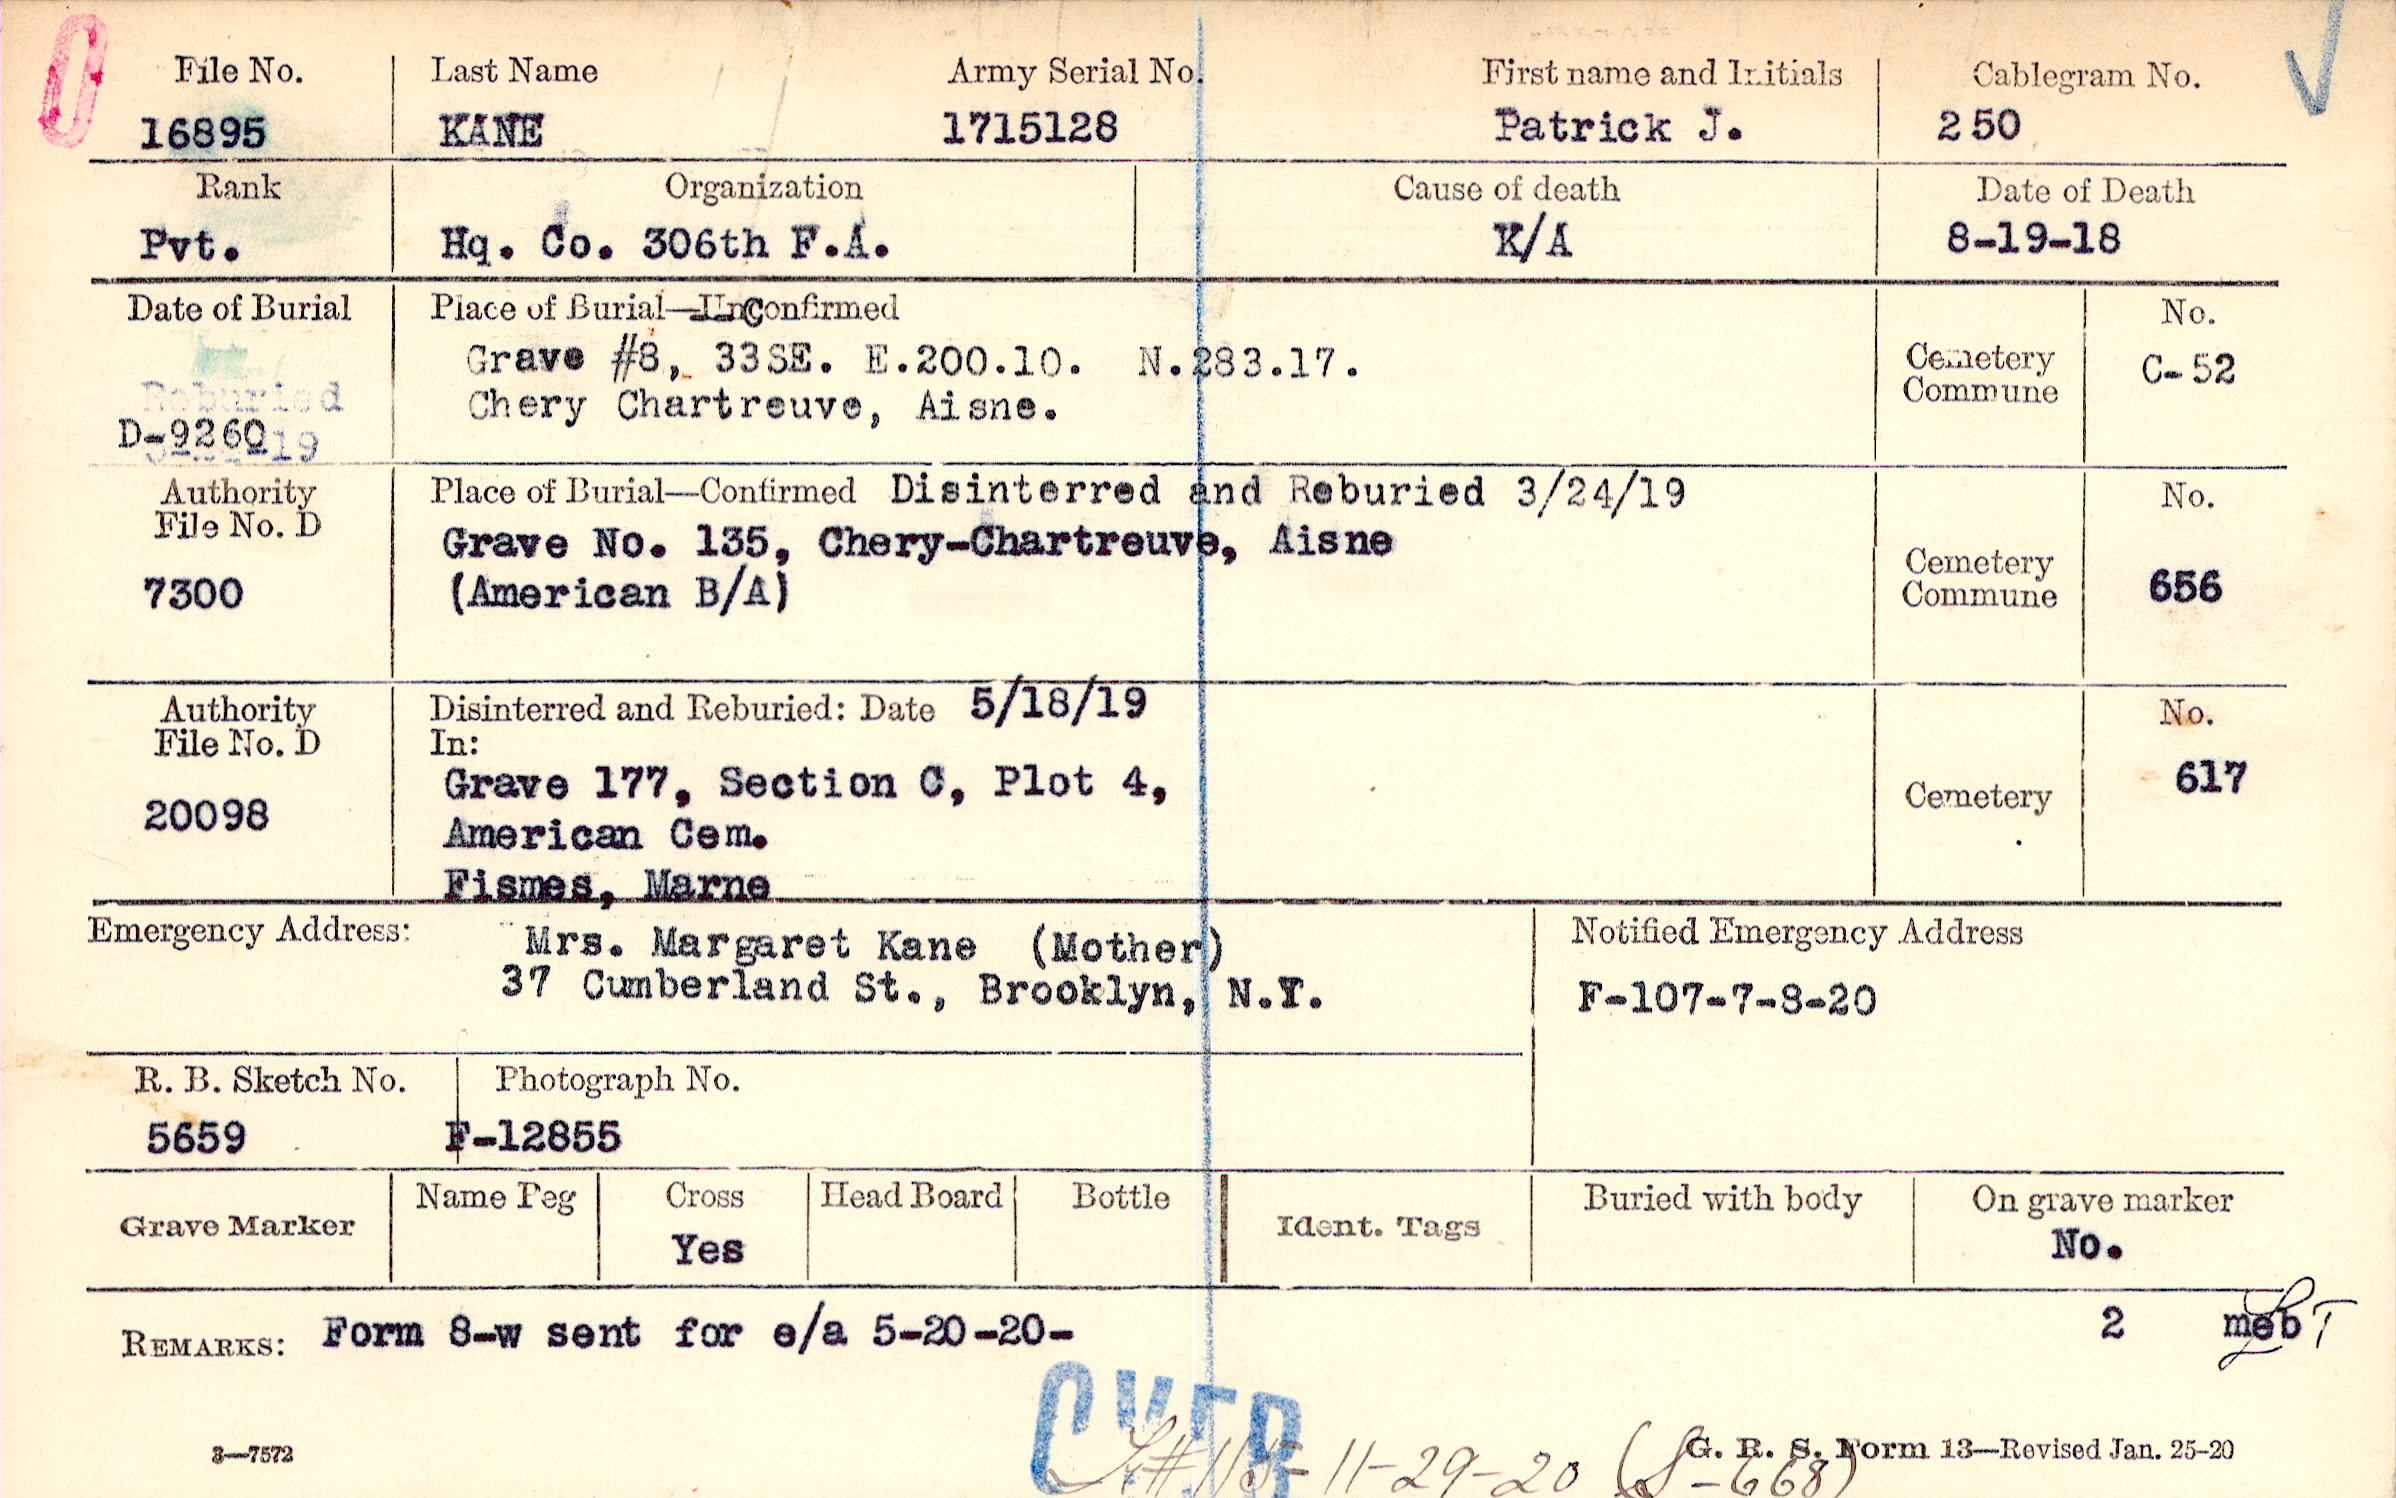 File No. Last Name Army Serial No. First name and Initials Cablegram No.
16895 KANE 1715128 Patrick J. 250
Rank Organization Cause of death Date of Death
Pvt. Hq. Co. 306th F.A. K/A 8-19-18
Date of Burial Place of Burial—UnConfirmed No.
Grave #8, 33SE. E.200.10. N.283.17. Cemetery Commune C-52
Reburied Chery Chartreuve, Aisne.
D-9260 19
Authority Place of Burial—Confirmed Disinterred and Reburied 3/24/19 No.
File No. D Grave No. 135, Chery-Chartreuve, Aisne
7300 (American B/A) Cemetery Commune 656
Authority Disinterred and Reburied: Date 5/18/19 No.
File No. D In:
Grave 177, Section C, Plot 4, 617
20098 American Cem. Cemetery
Fismes, Marne
Emergency Address: Mrs. Margaret Kane (Mother) Notified Emergency Address
37 Cumberland St., Brooklyn, N.Y. F-107-7-8-20
R. B. Sketch No. Photograph No.
5659 F-12855
Grave Marker Name Peg Cross Head Board Bottle Ident. Tags Buried with body On grave marker
Yes No.
REMARKS: Form 8-w sent for e/a 5-20-20- 2 meb
OVER
11-29-20 (S-668)
3—7572 G. R. S. Form 13—Revised Jan. 25-20